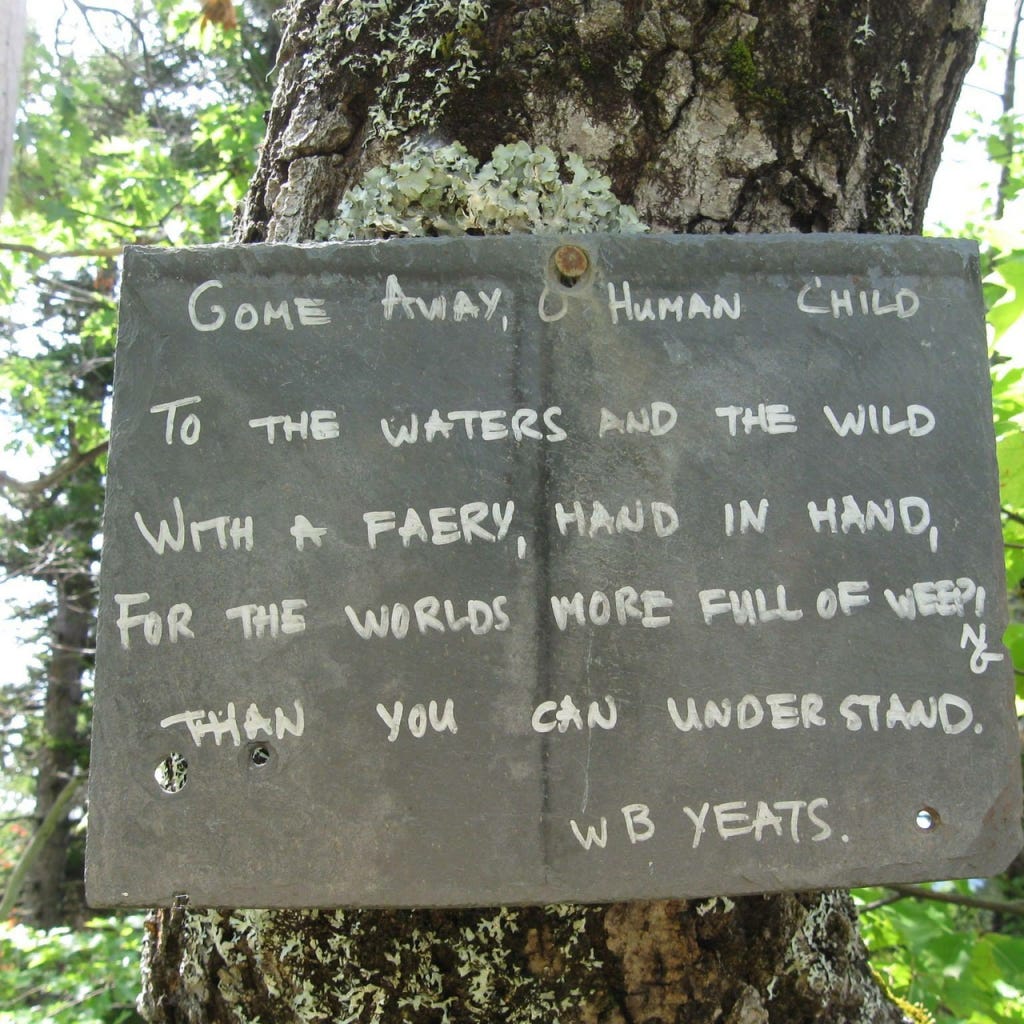 COME AWAY, O HUMAN CHILD
TO THE WATERS AND THE WILD
WITH A FAERY, HAND IN HAND,
FOR THE WORLDS MORE FULL OF WEEPI
NG
THAN YOU CAN UNDERSTAND.
W B YEATS.